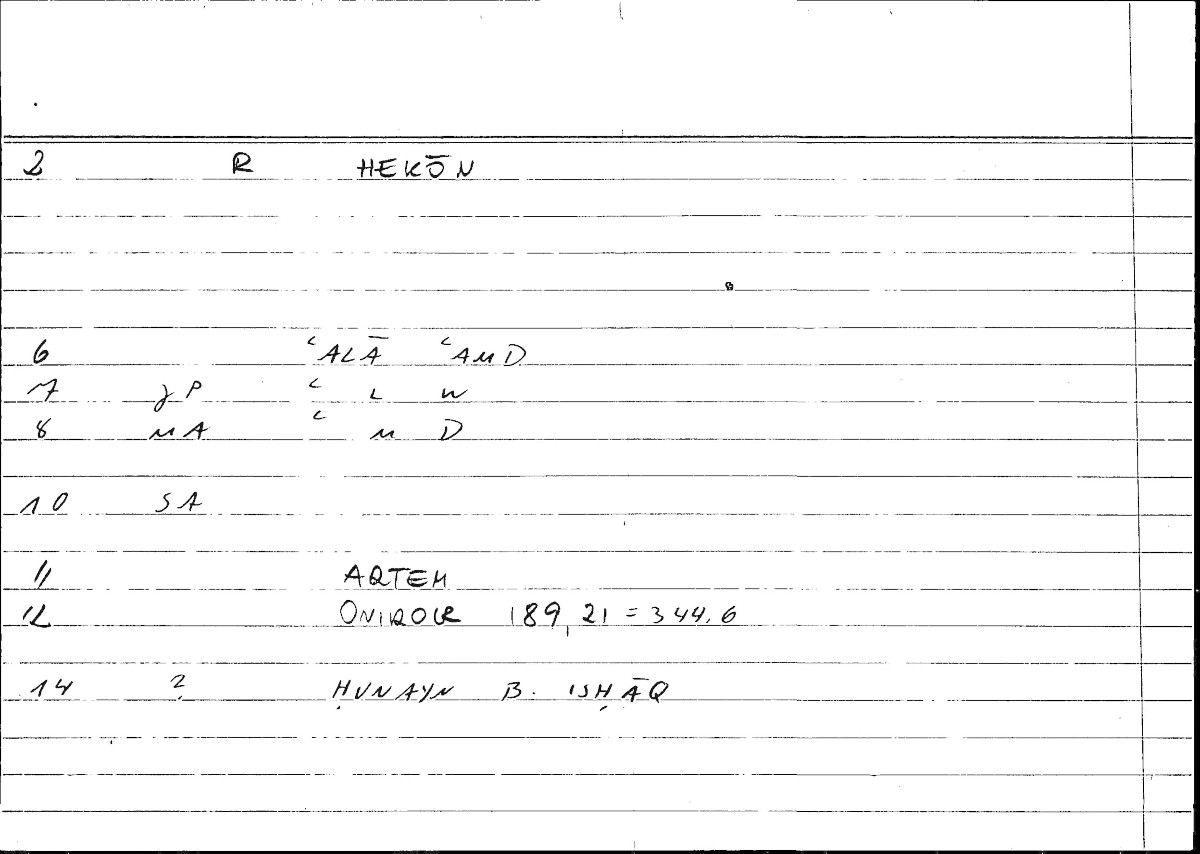 2 R HEKŌN
6 ʿALĀ ʿAMD
7 JP ʿ L W
8 MA ʿ M D
10 SA
11 ARTEM
12 ONIROCR 189,21 = 344.6
14 ? ḤUNAYN B. ISḤĀQ